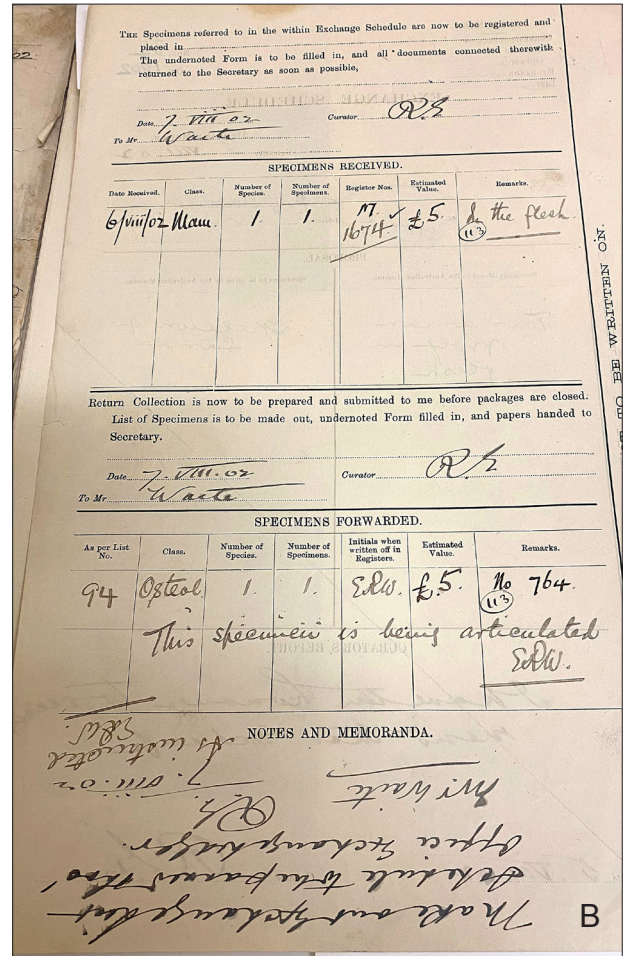 THE Specimens referred to in the within Exchange Schedule are now to be registered and
placed in
The undernoted Form is to be filled in, and all documents connected therewith
returned to the Secretary as soon as possible,
Date 7. VIII. 02 Curator R.E
To Mr Waite
SPECIMENS RECEIVED.
Date Received. Class. Number of Species. Number of Specimens. Register Nos. Estimated Value. Remarks.
6/viii/02 Mam. 1. 1. M. 1674 ✓ £5. In the flesh.
113
Return Collection is now to be prepared and submitted to me before packages are closed.
List of Specimens is to be made out, undernoted Form filled in, and papers handed to
Secretary.
Date 7. VIII. 02 Curator R.E
To Mr Waite
SPECIMENS FORWARDED.
As per List No. Class. Number of Species. Number of Specimens. Initials when written off in Registers. Estimated Value. Remarks.
94 Osteol 1. 1. E.R.W. £5. No 764.
113
This specimen is being articulated
E.R.W.
NOTES AND MEMORANDA.
Make out Exchange list
Schedule to be passed thro'
Office Exchange Ledger.
R.E
7. VIII. 02
Mr Waite
As instructed
E.R.W.
TO BE WRITTEN ON.
B
02